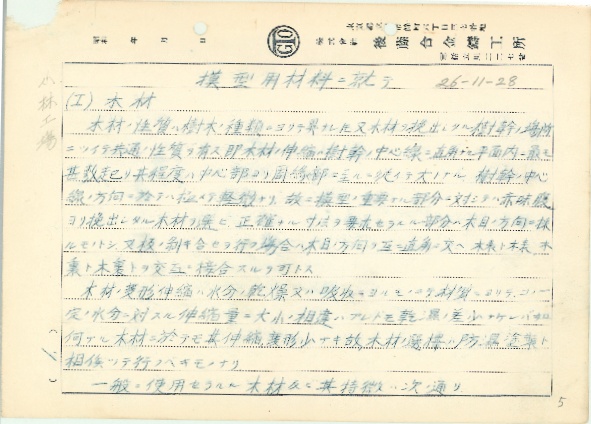 昭和 年 月 日
GIO
株式会社 後藤合金鑄工所
模型用材料ニ就テ 26-11-28
小林工場
(I) 木材
木材ノ性質ハ樹木ノ種類ニヨリテ異ナル 又木材ヲ挽出シタル樹幹ノ場所
ニツイテ共通ノ性質ヲ有ス 即木材ノ伸縮ハ樹幹ノ中心線ニ直角ナ平面内ニ最モ
甚敷起リ其程度ハ中心部ヨリ周縁部ニ至ルニ従イテ大ナル 樹幹ノ中心
線ノ方向ニ於テハ極イテ軽微ナリ 故ニ模型ノ重要ナル部分ニ対シテハ赤味
ヨリ挽出シタル木材ヲ 正確ナル寸法ヲ要求セラルル部分ハ木目ノ方向ニ採
ルモノトシ 又板ノ剥キ合セヲ行フ場合ハ木目ノ方向ヲ互ニ直角ニ又ハ 木表ト木表 木
裏ト木裏トヲ交互ニ接合スルヲ可トス
木材ノ変形伸縮ハ水分ノ乾燥又ハ吸収ニヨルモノニシテ材質ニヨリテコノ一
定ノ水分ニ対スル伸縮量ニ大小ノ相違ハアレドモ乾湿ノ差少ナケレバ
何ナル木材ニ於テモ其伸縮変形少ナキ故 木材ノ乾燥ハ防湿塗装ト
相俟ツテ行フベキモノナリ
一般ニ使用セラルル木材及ビ其特徴ハ次ノ通リ
(1)
5